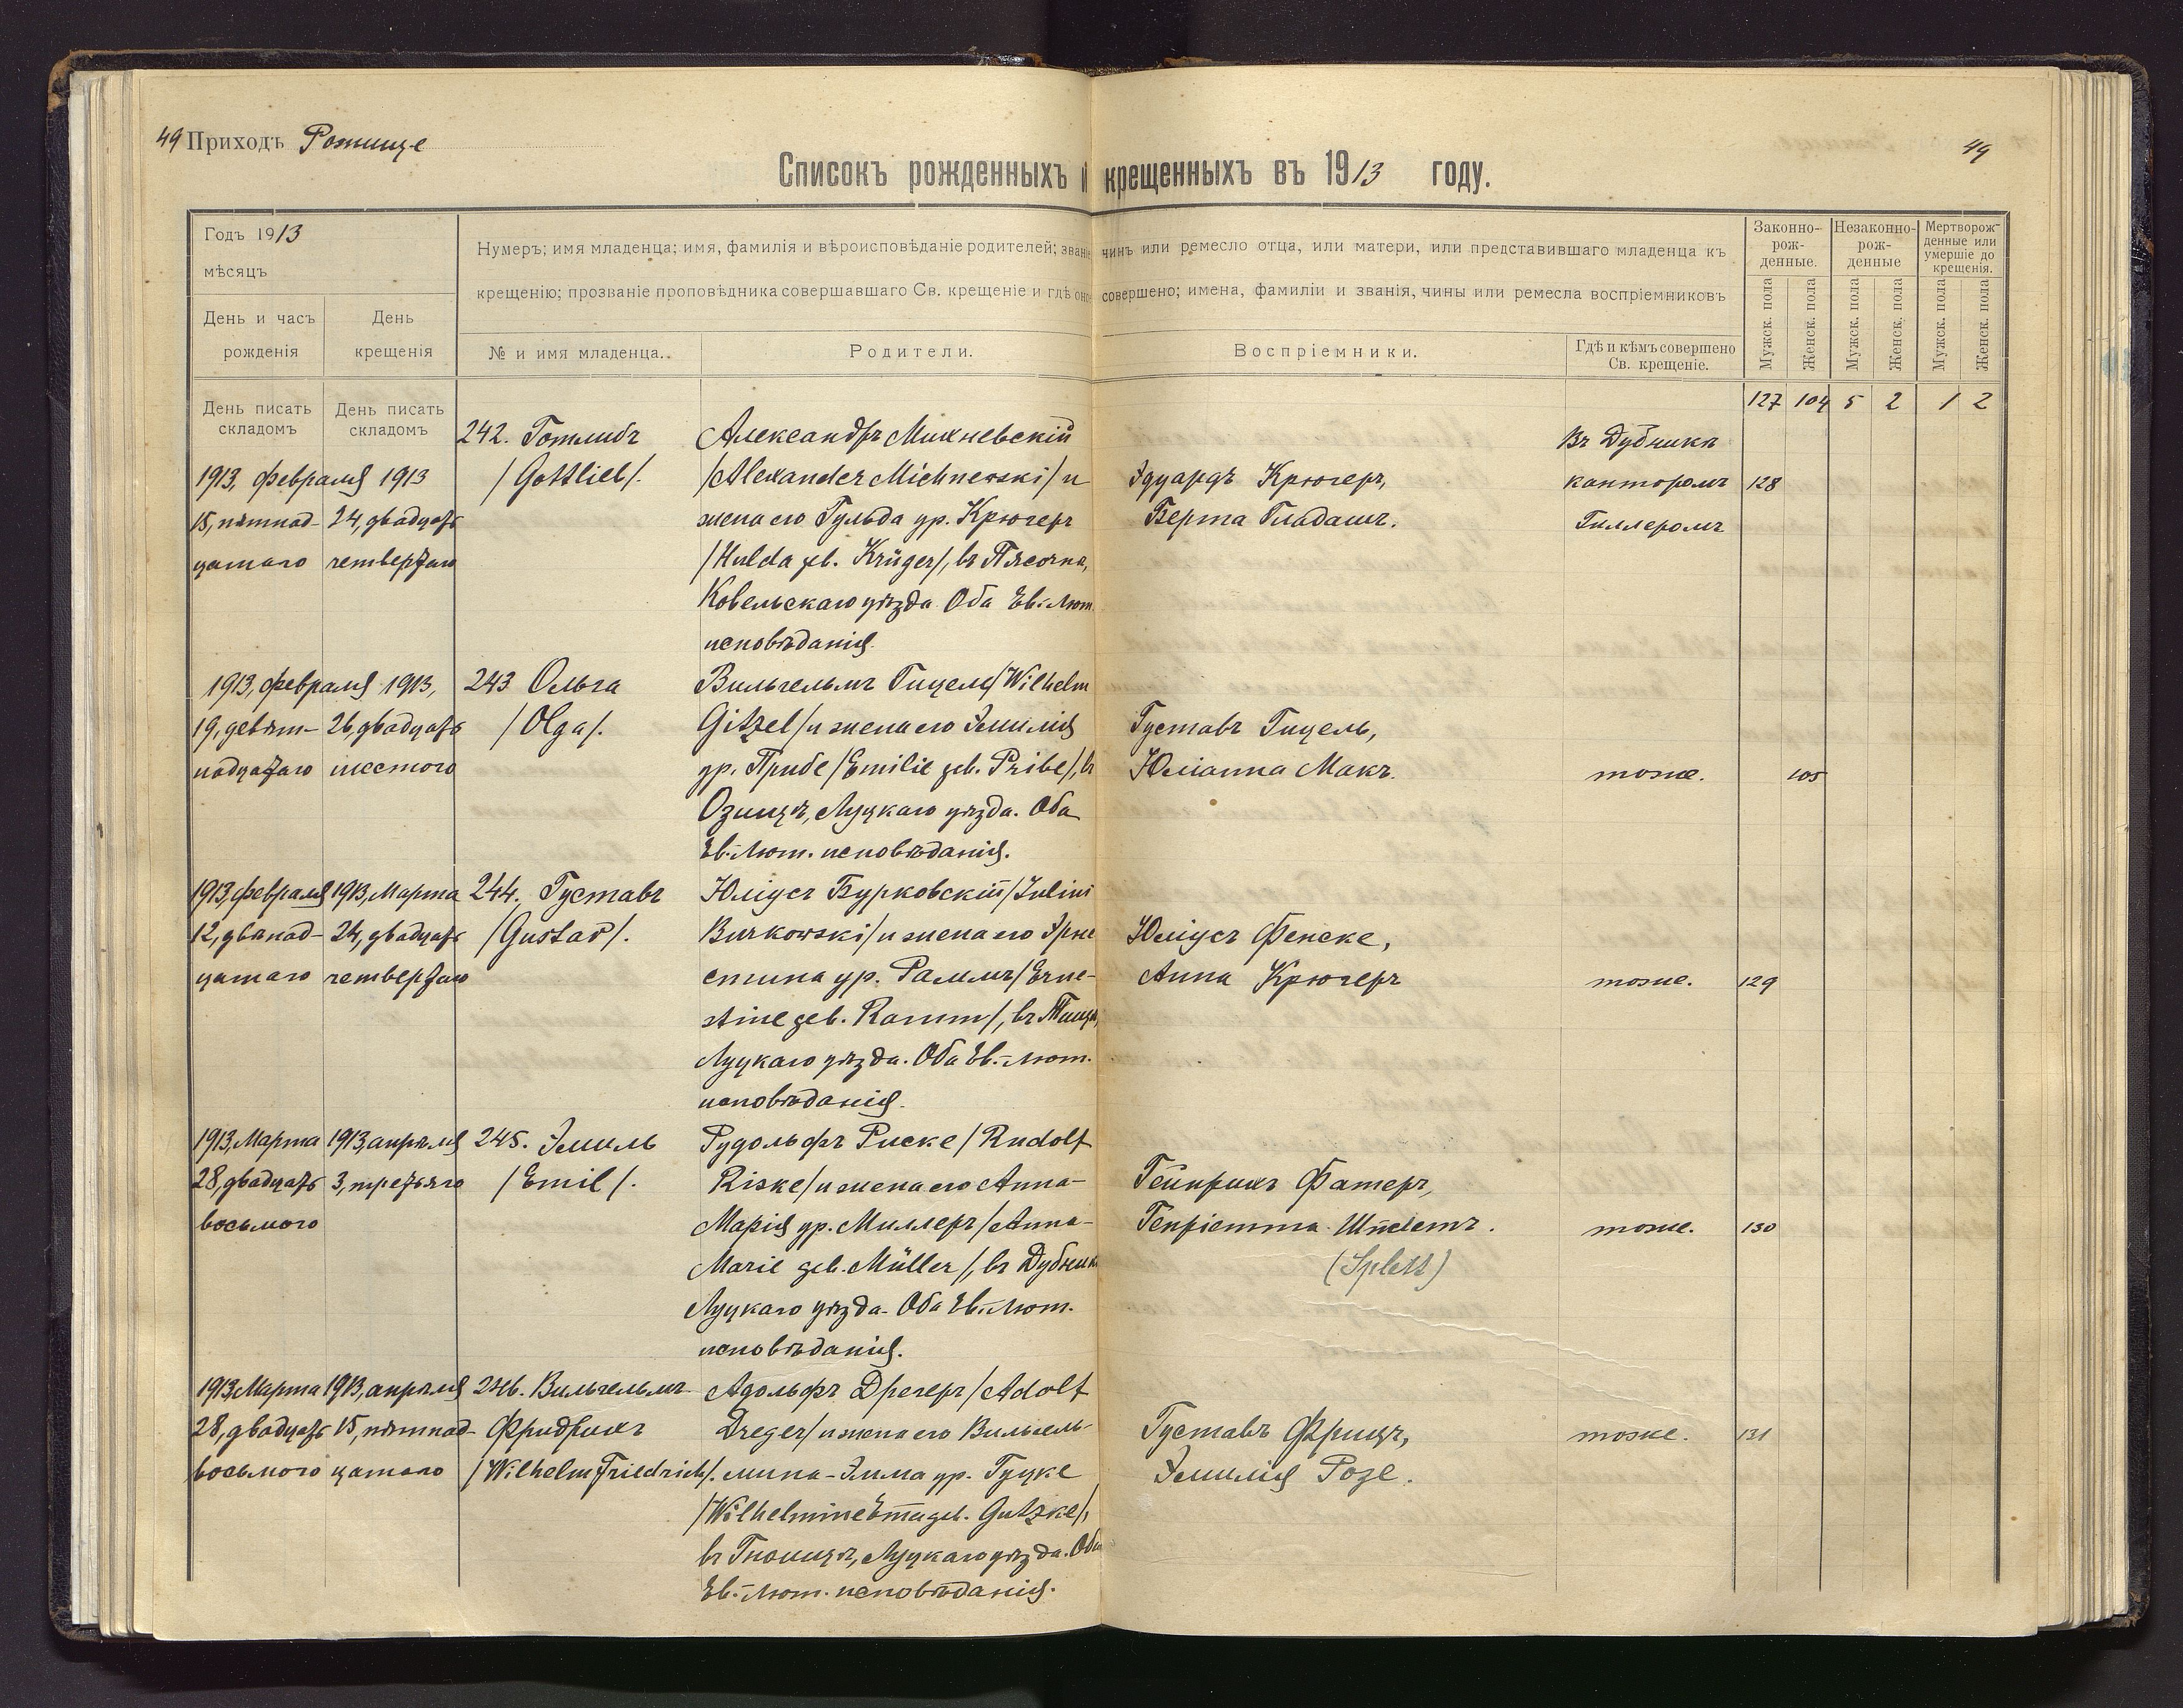 49 Приходъ Рожище
49
Списокъ рожденныхъ и крещенныхъ въ 1913 году.
Годъ 1913
мѣсяцъ
День и часъ рожденія
День крещенія
Нумеръ; имя младенца; имя, фамилія и вѣроисповѣданіе родителей; званіе чинъ или ремесло отца, или матери, или представившаго младенца къ
крещенію; прозваніе проповѣдника совершавшаго Св. крещеніе и гдѣ оно совершено; имена, фамиліи и званія, чины или ремесла воспріемниковъ
№ и имя младенца.
Родители.
Воспріемники.
Гдѣ и кѣмъ совершено
Св. крещеніе.
Законно-
рож-
денные.
Незаконно-
рож-
денные
Мертворож-
денные или
умершіе до
крещенія.
Мужск. пола
Женск. пола
Мужск. пола
Женск. пола
Мужск. пола
Женск. пола
День писать
складомъ
День писать
складомъ
127 104 5 2 1 2
1913, февраля 1913
15, пятнад- 24, двадцать
цатаго четвертаго
242. Готлибъ
/Gottlieb/.
Александръ Михневскій
/Alexander Michnewski/ и
жена его Гульда ур. Крюгеръ
/Hulda geb. Krüger/, въ Пясочна,
Ковельскаго уѣзда. Оба Ев.-Лют.
исповѣданія.
Эдуардъ Крюгеръ,
Берта Гладашъ.
Въ Дубникѣ
канторомъ
Гиллеромъ
128
1913, февраля 1913,
19, девят- 26, двадцать
надцатаго шестого
243 Ольга
/Olga/.
Вильгельмъ Гицель/Wilhelm
Gitzel/ и жена его Эмилія
ур. Прибе/Emilie geb. Pribe/, въ
Озищѣ, Луцкаго уѣзда. Оба
Ев.-Лют. исповѣданія.
Густавъ Гицель,
Юліанна Макъ.
тоже.
105
1913, февраля 1913, Марта
12, двѣнад- 24, двадцать
цатаго четвертаго
244. Густавъ
/Gustav/.
Юліусъ Бурковскій/Julius
Burkowski/ и жена его Эрне
стина ур. Раммъ/Erne-
stine geb. Ramm/, въ
Луцкаго уѣзда. Оба Ев.-Лют.
исповѣданія.
Юліусъ Фенске,
Анна Крюгеръ
тоже.
129
1913, Марта 1913, апрѣля
28, двадцать 3, третьяго
восьмого
245. Эмиль
/Emil/.
Рудольфъ Риске/Rudolf
Riske/ и жена его Анна-
Марія ур. Миллеръ/Anna-
Marie geb. Müller/, въ Дубникѣ
Луцкаго уѣзда. Оба Ев.-Лют.
исповѣданія.
Гейнрихъ Фатеръ,
Генріетта Шплетъ.
(Splett)
тоже.
130
1913, Марта 1913, апрѣля
28, двадцать 15, пятнад-
восьмого цатаго
246. Вильгельмъ
Фридрихъ
/Wilhelm Friedrich/.
Адольфъ Дрегеръ/Adolf
Dreger/ и жена его Вильгель-
мина-Эмма ур. Гуцке
/Wilhelmine Emma geb. Gutzke/,
въ Луцкаго уѣзда. Оба
Ев.-Лют. исповѣданія.
Густавъ Фрицъ,
Эмилія Розе.
тоже.
131